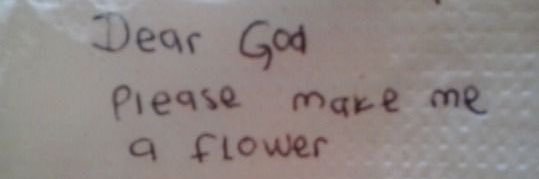 Dear God
Please make me
a flower